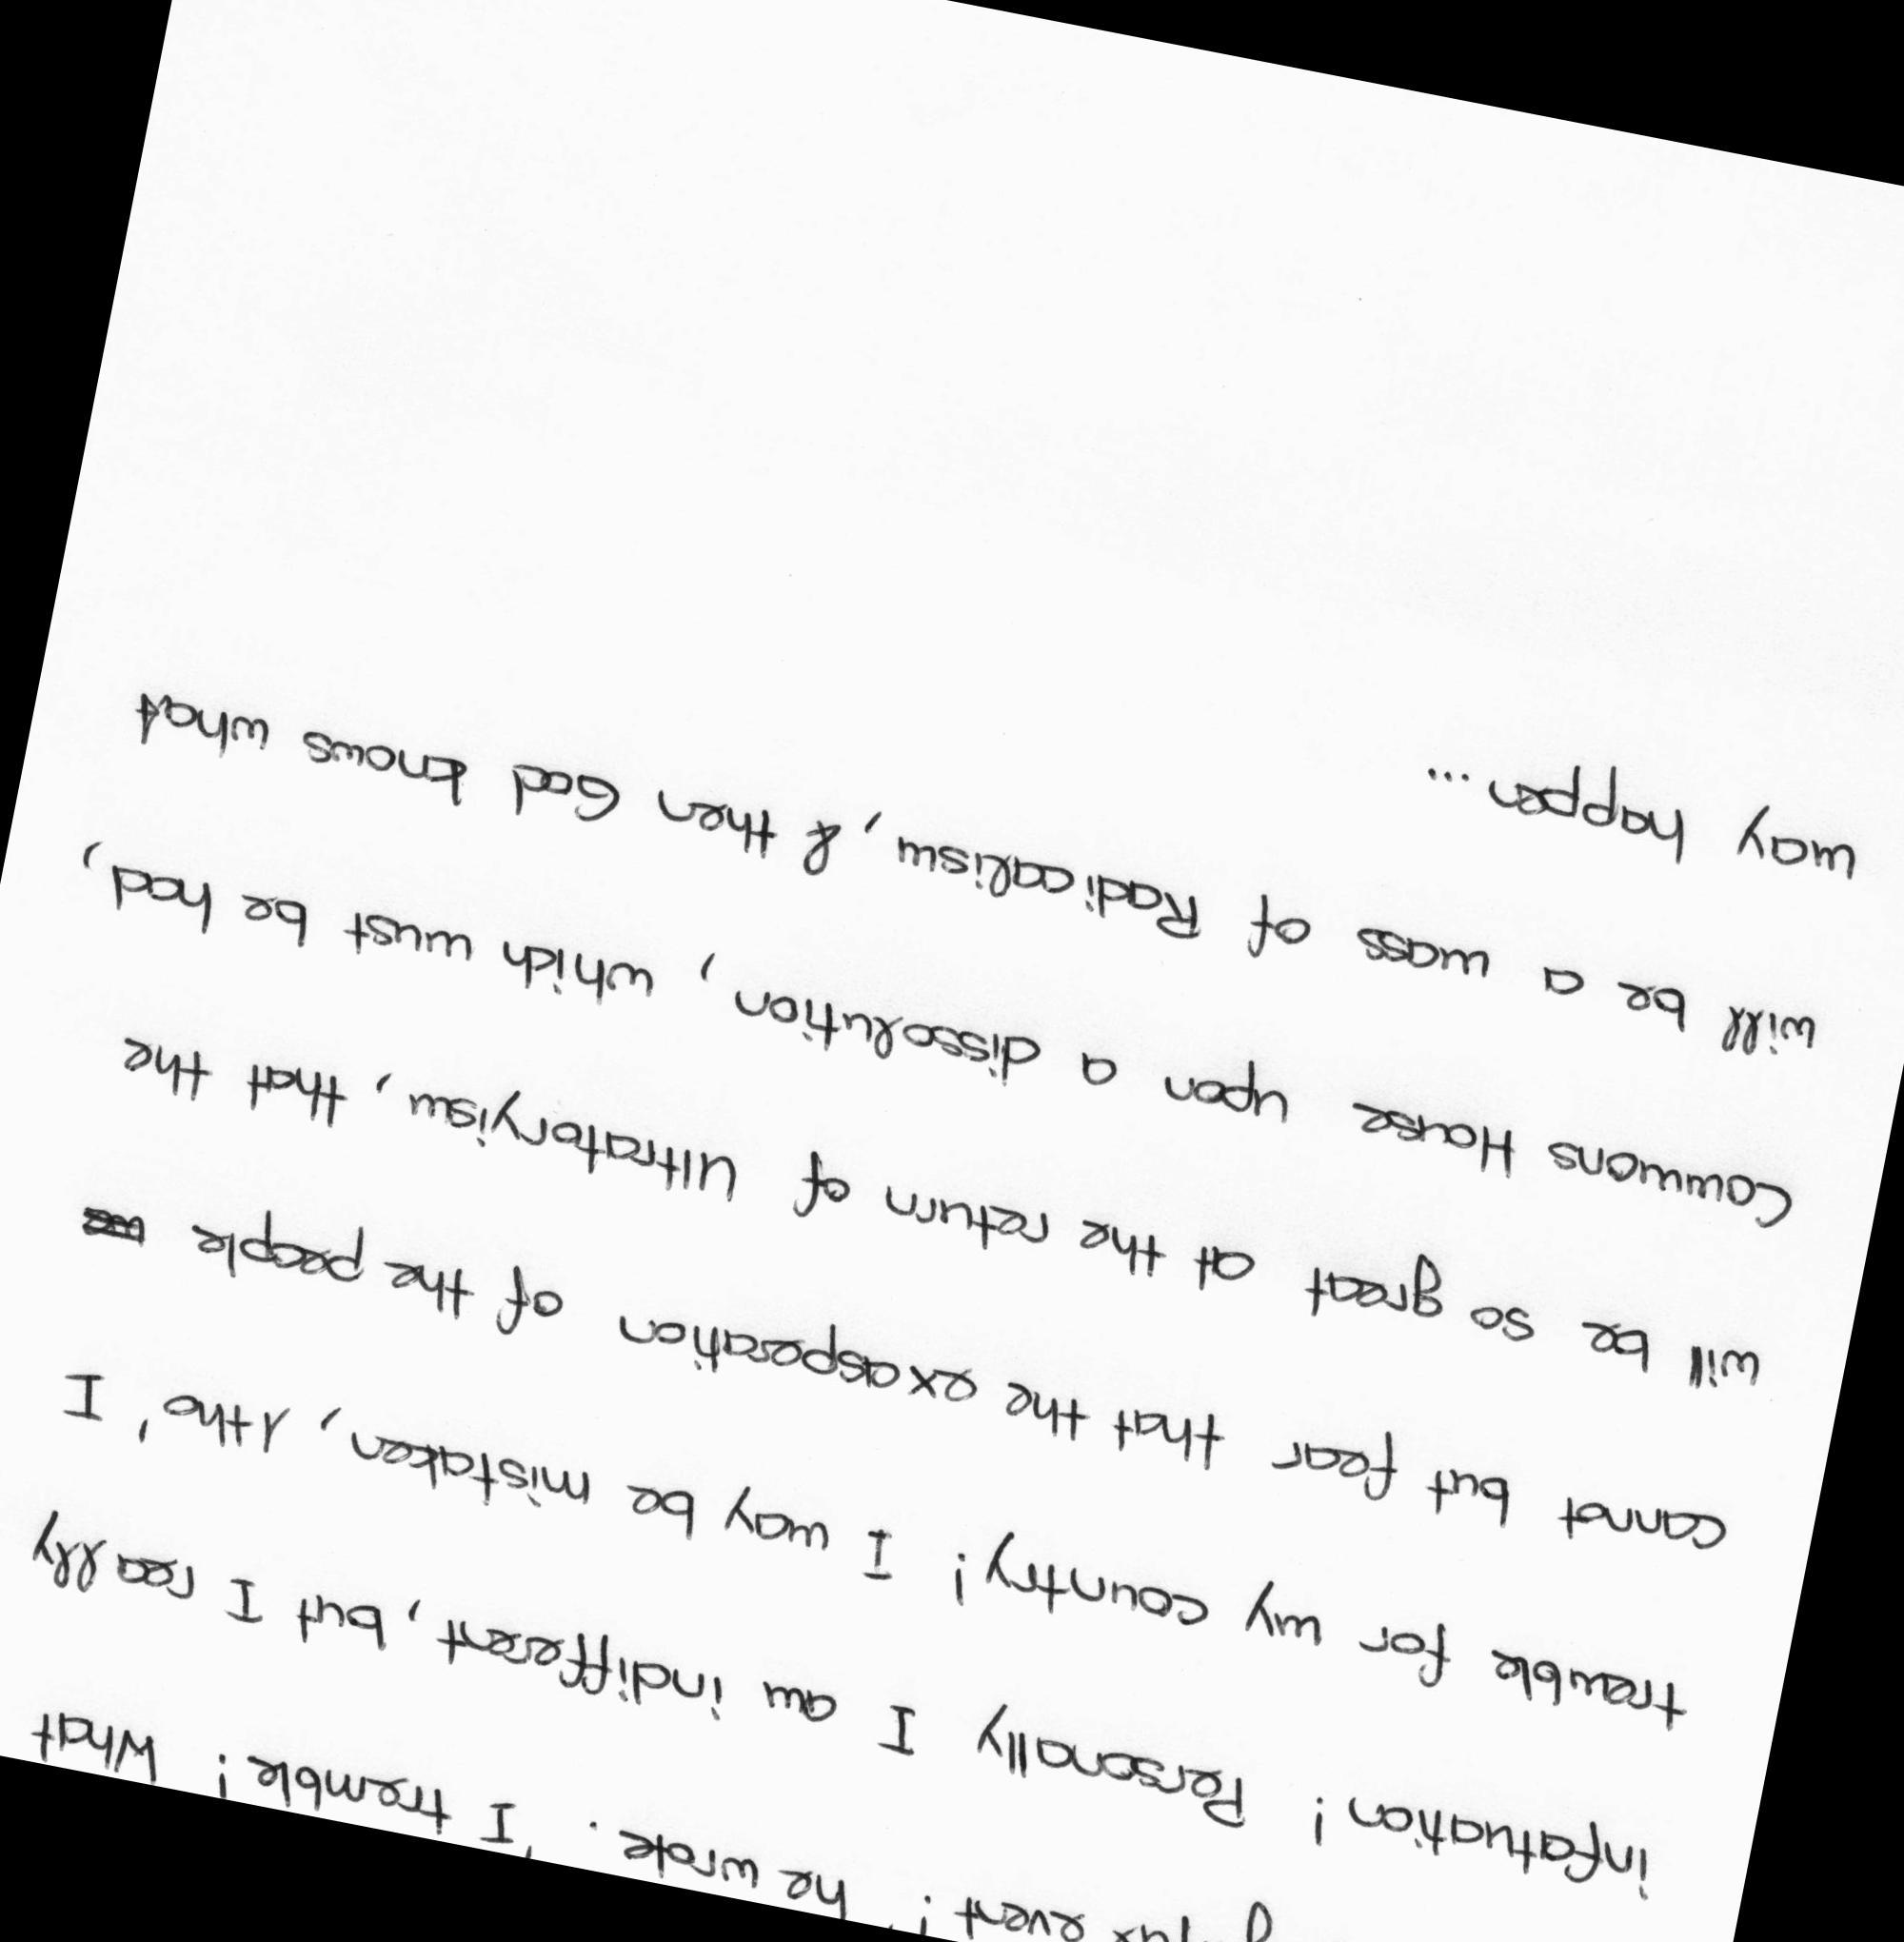 event!' he wrote. 'I tremble! What
infatuation! Personally I am indifferent, but I really
tremble for my country! I may be mistaken, & tho' I
cannot but fear that the exasperation of the people
will be so great at the return of Ultratoryism, that the
Commons House upon a dissolution, which must be had,
will be a mass of Radicalism, & then God knows what
may happen ...